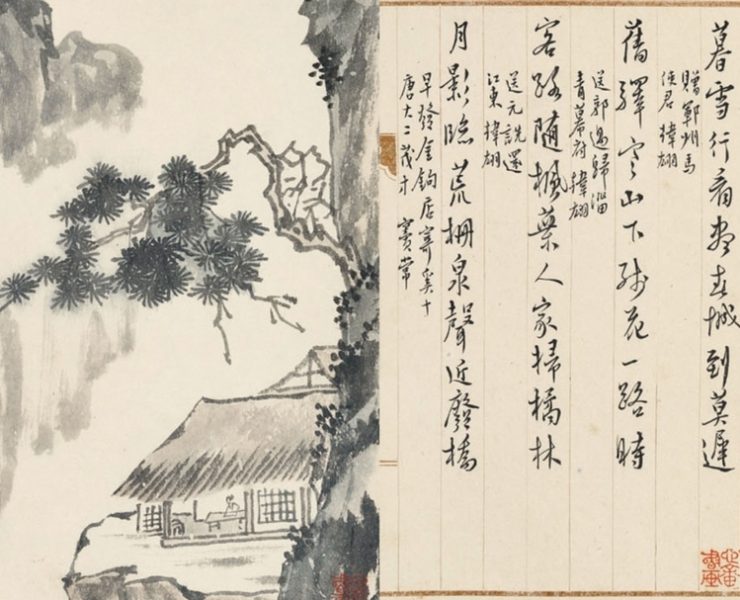 暮雪行看盡春城到莫遲
贈鄆州馬
使君 韓翃
舊驛寒山下殘花一路時
送郭歸淄
青幕府 韓翃
客路隨楓葉人家掃橘林
送元詵還
江東 韓翃
月影臨荒柵泉聲近廢橋
早發金鉤店寄奚十
唐大二茂才 竇常